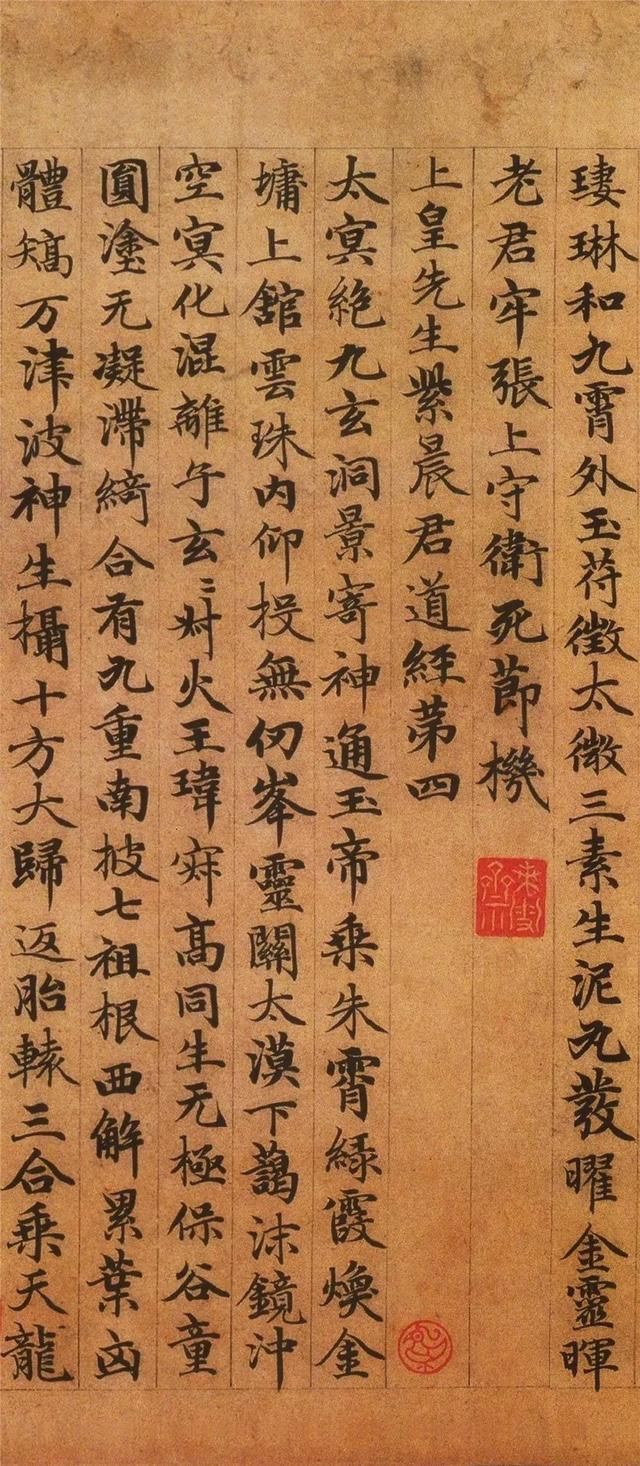 琳和九霄外玉苻徵太微三素生泥丸發曜金靈暉
老君牢張上守衛死莭機
上皇先生紫晨君道經苐四
太㝠絶九玄洞景寄神通玉帝乗朱霄緑霞煥金
墉上舘雲珠内仰投無仞峯靈關太漠下藹沫鏡沖
空㝠化混離子玄〻火王瑋寂高同生无極保谷童
圓塗无凝滯綺合有九重南披七祖根西解累葉凶
體矯万津波神生攝十方大歸返胎轅三合乗天龍